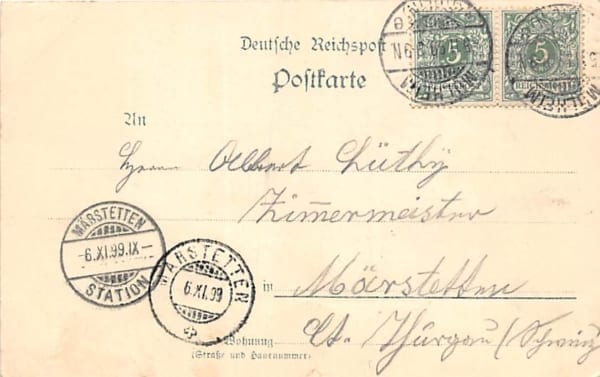 Deutsche Reichspost
Postkarte
5
5
REICHSPOST
MÜLHEIM
An
Herrn Albert Lüthy
Zimmermeister
MÄRSTETTEN
-6.XI.99.IX-
STATION
MÄRSTETTEN
6.XI.99
in Märstetten
Ct. Thurgau (Schweiz
Wohnung
(Straße und Hausnummer)